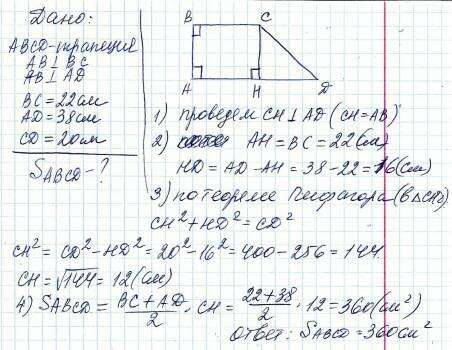 Дано:
ABCD-трапеция
AB⊥BC
AB⊥AD
BC=22см
AD=38см
CD=20см
SABCD-?
B C
A H D
1) проведем CH⊥AD (CH=AB)
2) AH=BC=22(см)
HD=AD-AH=38-22=16(см)
3) по теореме Пифагора (в ΔCHD)
CH²+HD²=CD²
CH²=CD²-HD²=20²-16²=400-256=144
CH=√144=12(см)
4) SABCD=(BC+AD)/2·CH=(22+38)/2·12=360(см²)
Ответ: SABCD=360см²